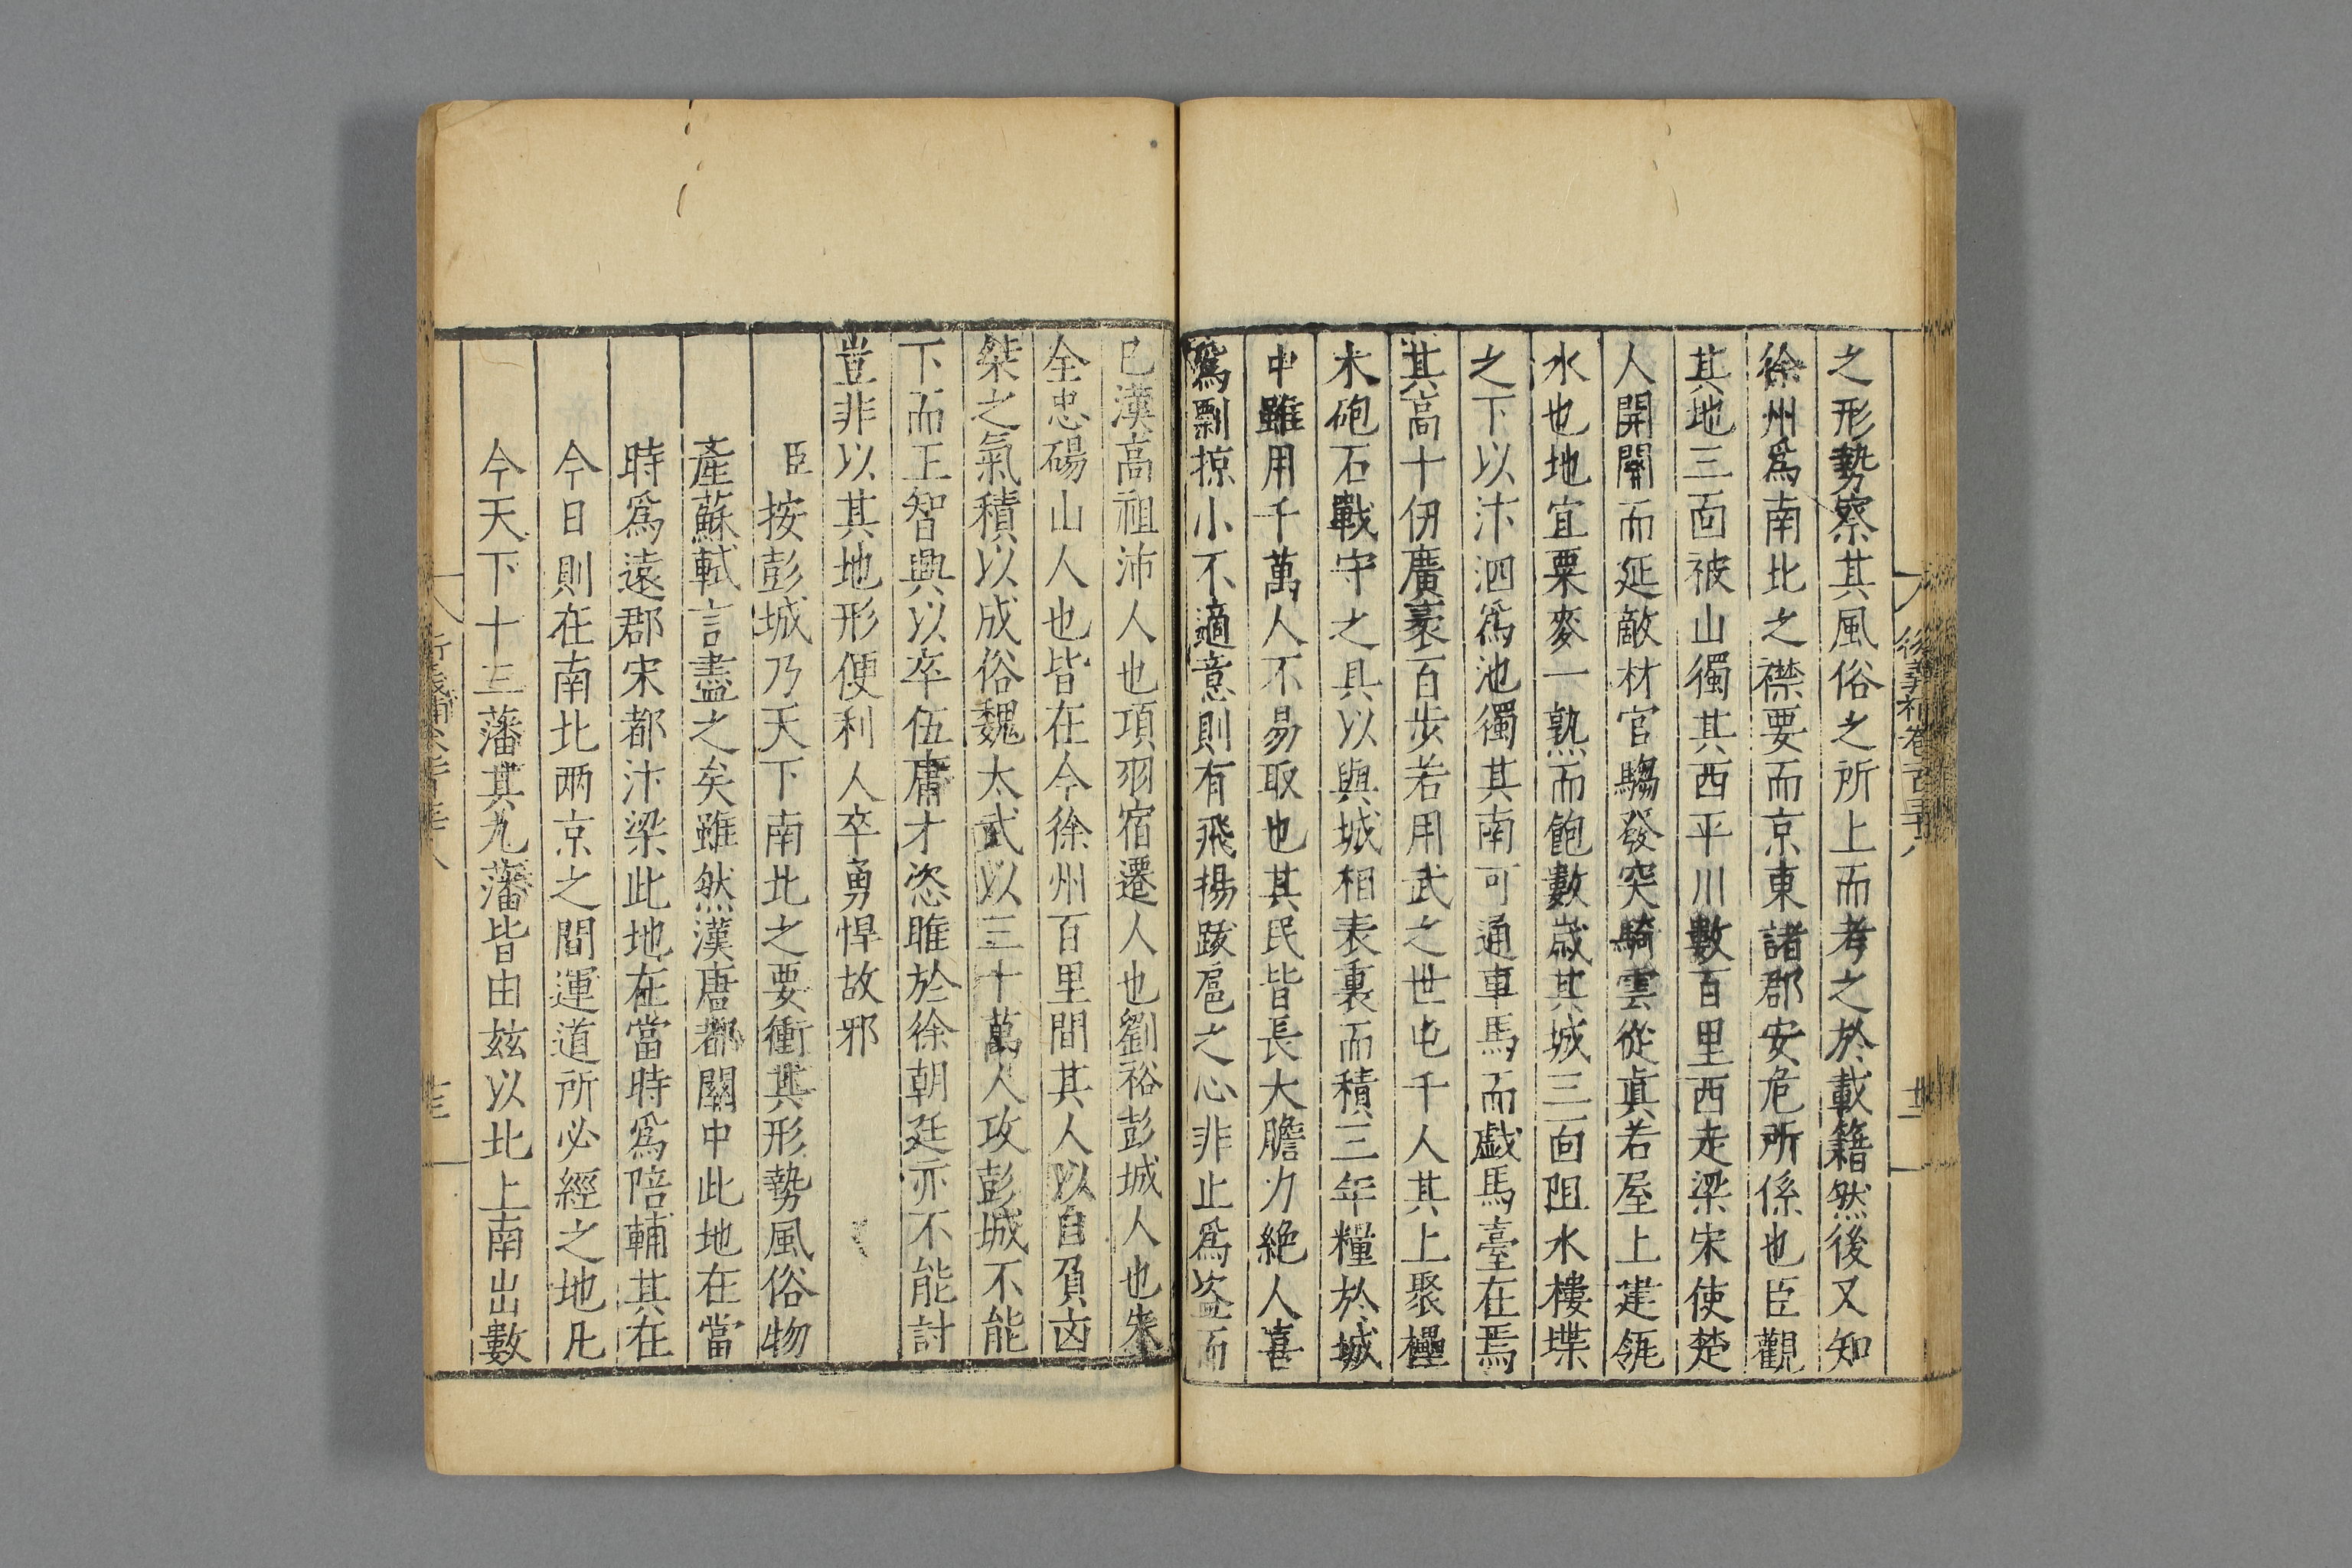 之形勢察其風俗之所上而考之於載籍然後又知
徐州爲南北之襟要而京東諸郡安危所係也臣觀
其地三面被山獨其西平川數百里西走梁宋使楚
人開關而延敵材官騶發突騎雲從眞若屋上建瓴
水也地宜粟麥一熟而飽數歲其城三面阻水樓堞
之下以汴泗爲池獨其南可通車馬而戯馬臺在焉
其高十仞廣袤百步若用武之世屯千人其上聚櫑
木砲石戰守之具以與城相表裏而積三年糧於城
中雖用千萬人不易取也其民皆長大膽力絶人喜
爲剽掠小不適意則有飛揚跋扈之心非止爲盗而
已漢高祖沛人也項羽宿遷人也劉裕彭城人也朱
全忠碭山人也皆在今徐州百里間其人以自負凶
桀之氣積以成俗魏太武以三十萬人攻彭城不能
下而王智興以卒伍庸才恣睢於徐朝廷亦不能討
豈非以其地形便利人卒勇悍故邪
臣按彭城乃天下南北之要衝其形勢風俗物
產蘇軾言盡之矣雖然漢唐都關中此地在當
時爲遠郡宋都汴梁此地在當時爲陪輔其在
今日則在南北兩京之間運道所必經之地凡
今天下十三藩其九藩皆由兹以北上南出數